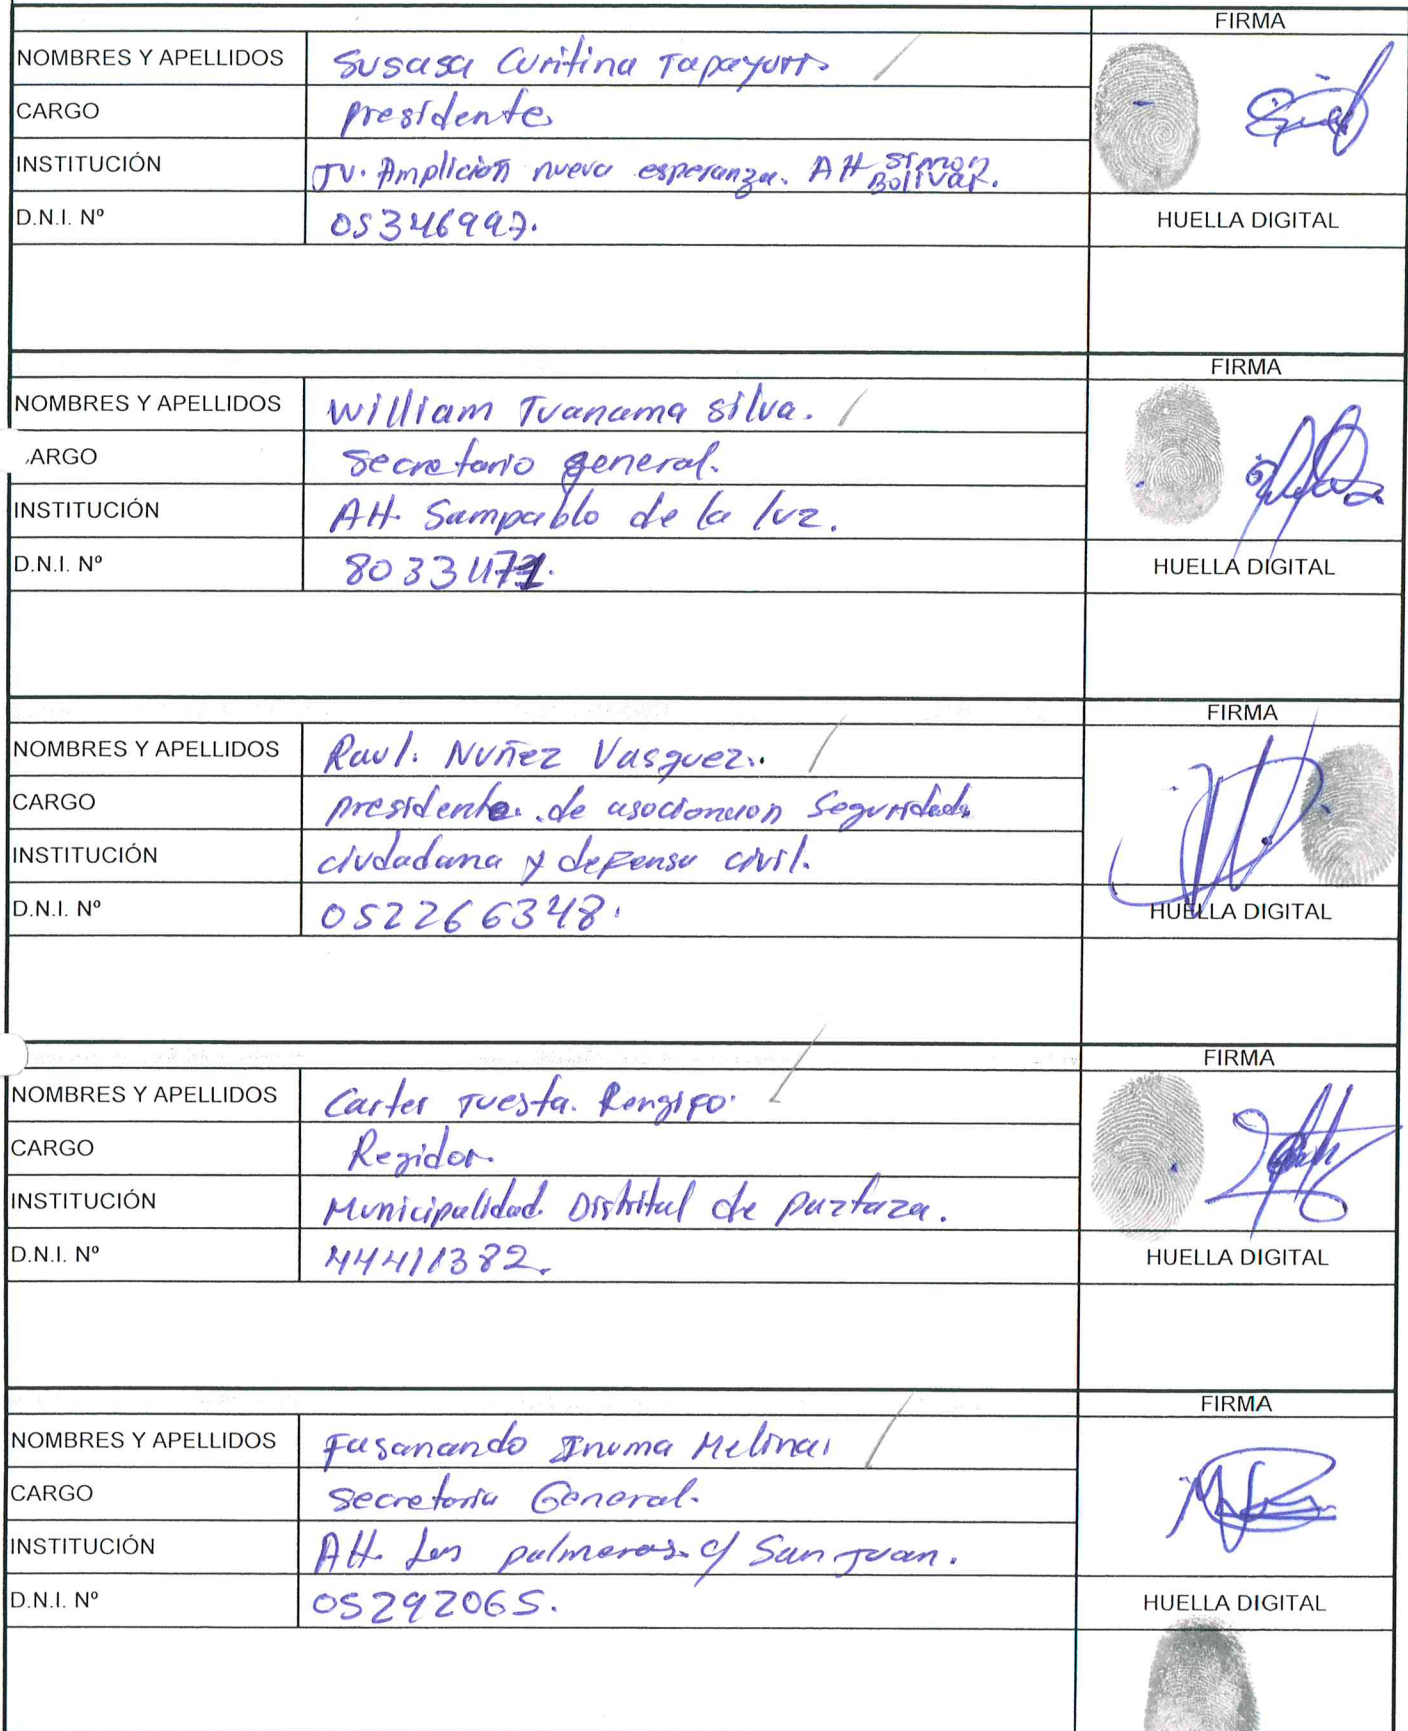 FIRMA
NOMBRES Y APELLIDOS Susasa Curitina Tapayuri
CARGO presidente
INSTITUCIÓN JV. Amplición nueva esperanza. AH Simon Bolivar.
D.N.I. Nº 05346997.
HUELLA DIGITAL
FIRMA
NOMBRES Y APELLIDOS William Tuanama silva.
ARGO secretario general.
INSTITUCIÓN AH. Sampablo de la luz.
D.N.I. Nº
HUELLA DIGITAL
FIRMA
NOMBRES Y APELLIDOS Raul. Nuñez Vasquez.
CARGO presidente de Seguridad
INSTITUCIÓN ciudadana y defensa civil.
D.N.I. Nº 052266348.
HUELLA DIGITAL
FIRMA
NOMBRES Y APELLIDOS Carter Tuesta. Rengifo.
CARGO Regidor.
INSTITUCIÓN Municipalidad Distrital de paztaza.
D.N.I. Nº 44411382.
HUELLA DIGITAL
FIRMA
NOMBRES Y APELLIDOS Fasanando Inuma Melina
CARGO secretaria General.
INSTITUCIÓN AH. Las palmeras c/ San Juan.
D.N.I. Nº 05292065.
HUELLA DIGITAL